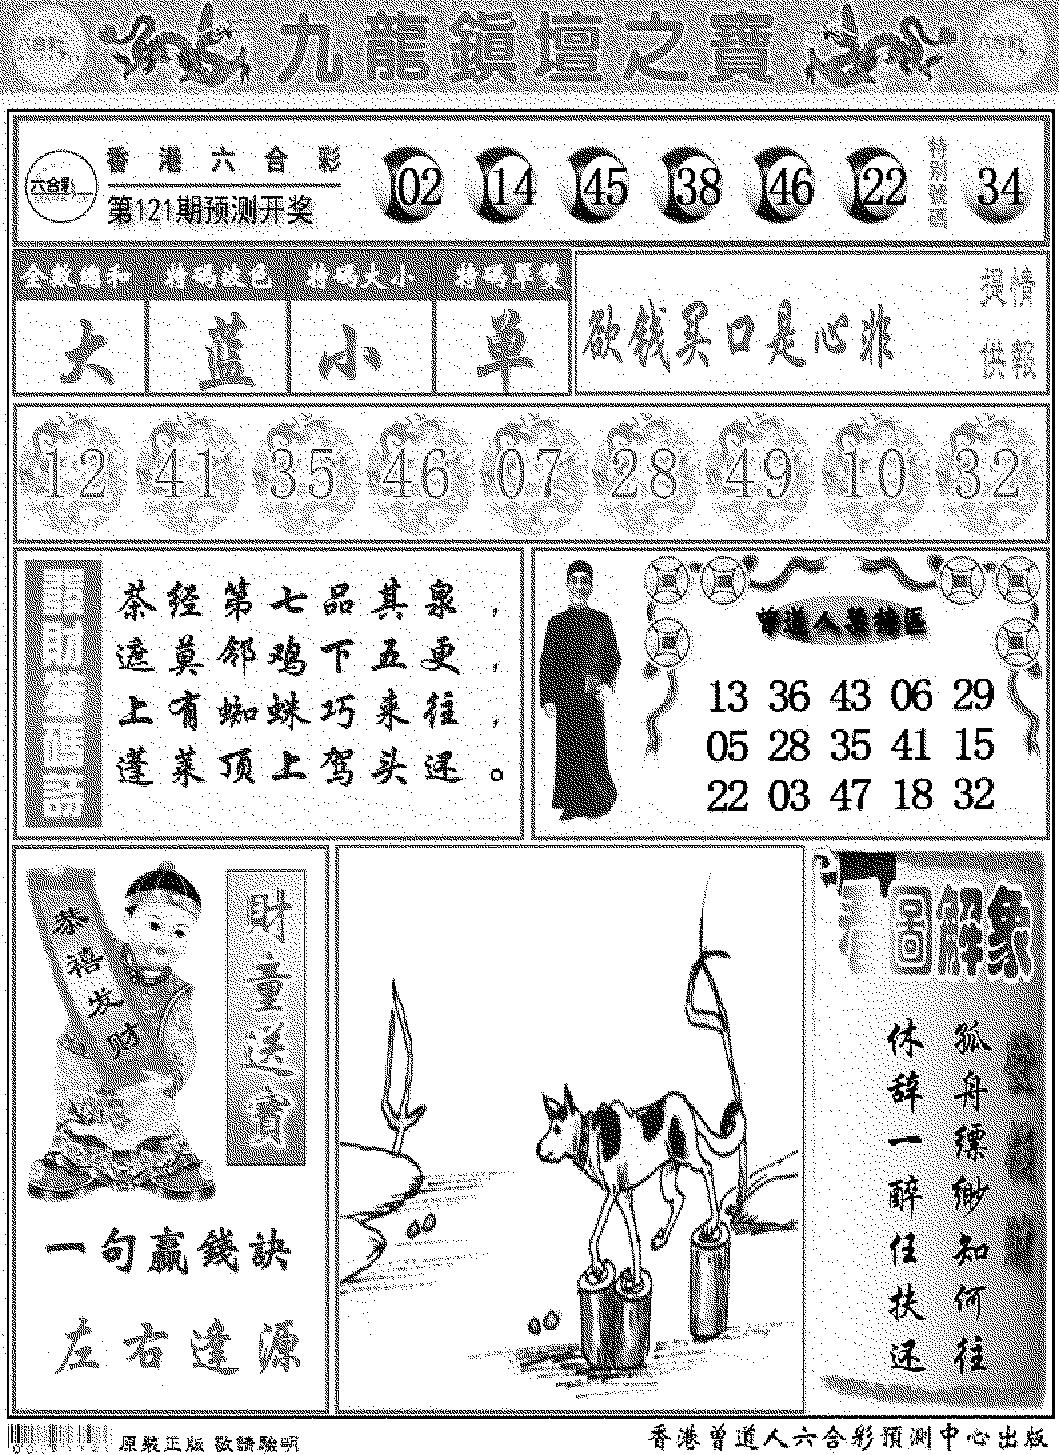 九龍鎮壇之寶
六合彩
香港六合彩
第121期预测开奖
02 14 45 38 46 22
特别號碼
34
全数總和 特碼波色 特碼大小 特碼單雙
大 蓝 小 单
欲钱买口是心非
提供
情報
12 41 35 46 07 28 49 10 32
茶经第七品其泉，
遮莫邻鸡下五更，
上有蜘蛛巧来往，
蓬莱顶上驾头还。
曾道人
13 36 43 06 29
05 28 35 41 15
22 03 47 18 32
恭禧发财
財童送寶
一句赢錢訣
左右逢源
圖解象
孤舟缥缈知何往
休辞一醉任扶还
原裝正版 敬請驗明
香港曾道人六合彩預測中心出版